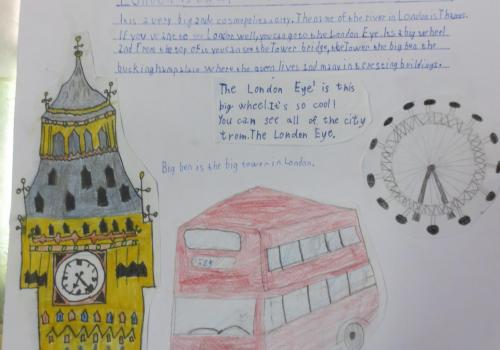 LONDON
It is a very big and cosmopolitan city. The name of the river in London is Thames.
If you want to see London well, you can go to the London Eye. It's a big wheel
and from the top of it you can see the Tower bridge, the Tower, the big ben, the
buckinghampalace where the queen lives and many interesting buildings.
The London Eye' is this
big wheel.It's so cool!
You can see all of the city
from.The London Eye.
Big ben is the big tower in London.